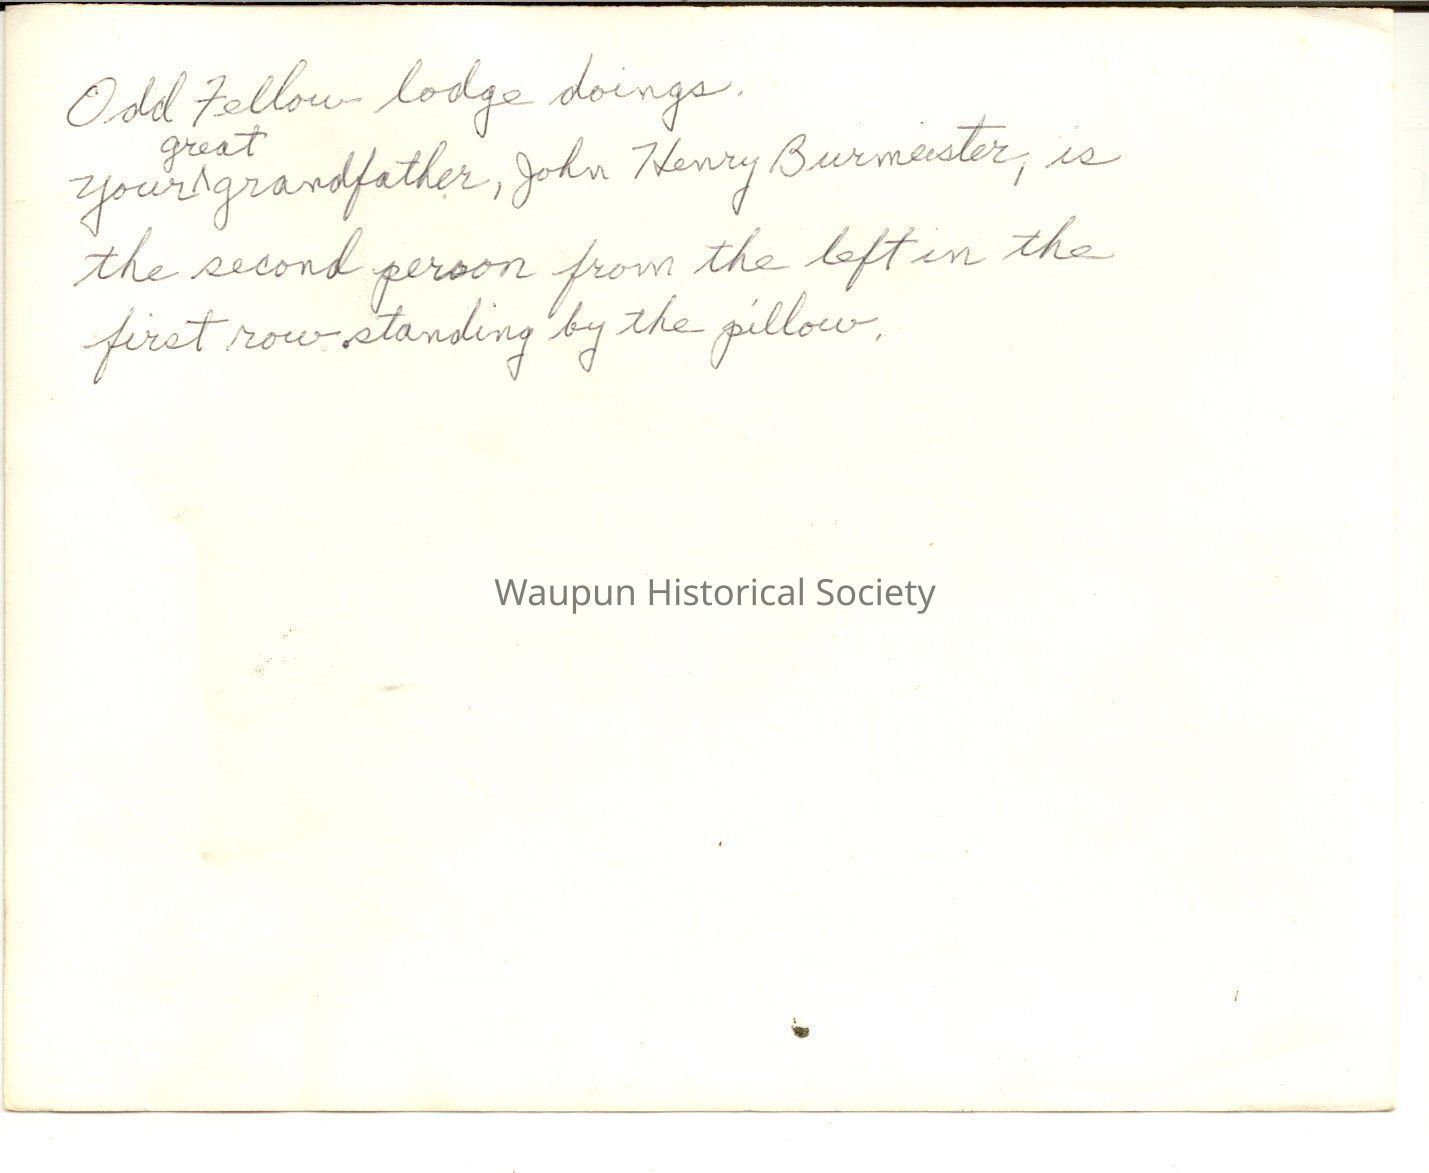 Odd Fellow lodge doings.
great
your ^ grandfather, John Henry Burmeister, is
the second person from the left in the
first row standing by the pillow.
Waupun Historical Society